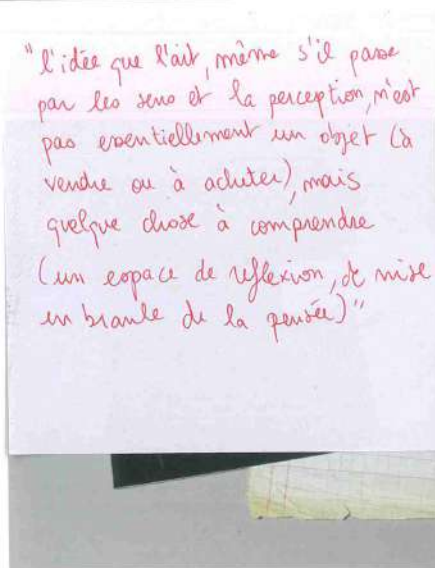 "l'idée que l'art, même s'il passe
par les sens et la perception, n'est
pas essentiellement un objet (à
vendre ou à acheter), mais
quelque chose à comprendre
(un espace de réflexion, de mise
en branle de la pensée)"